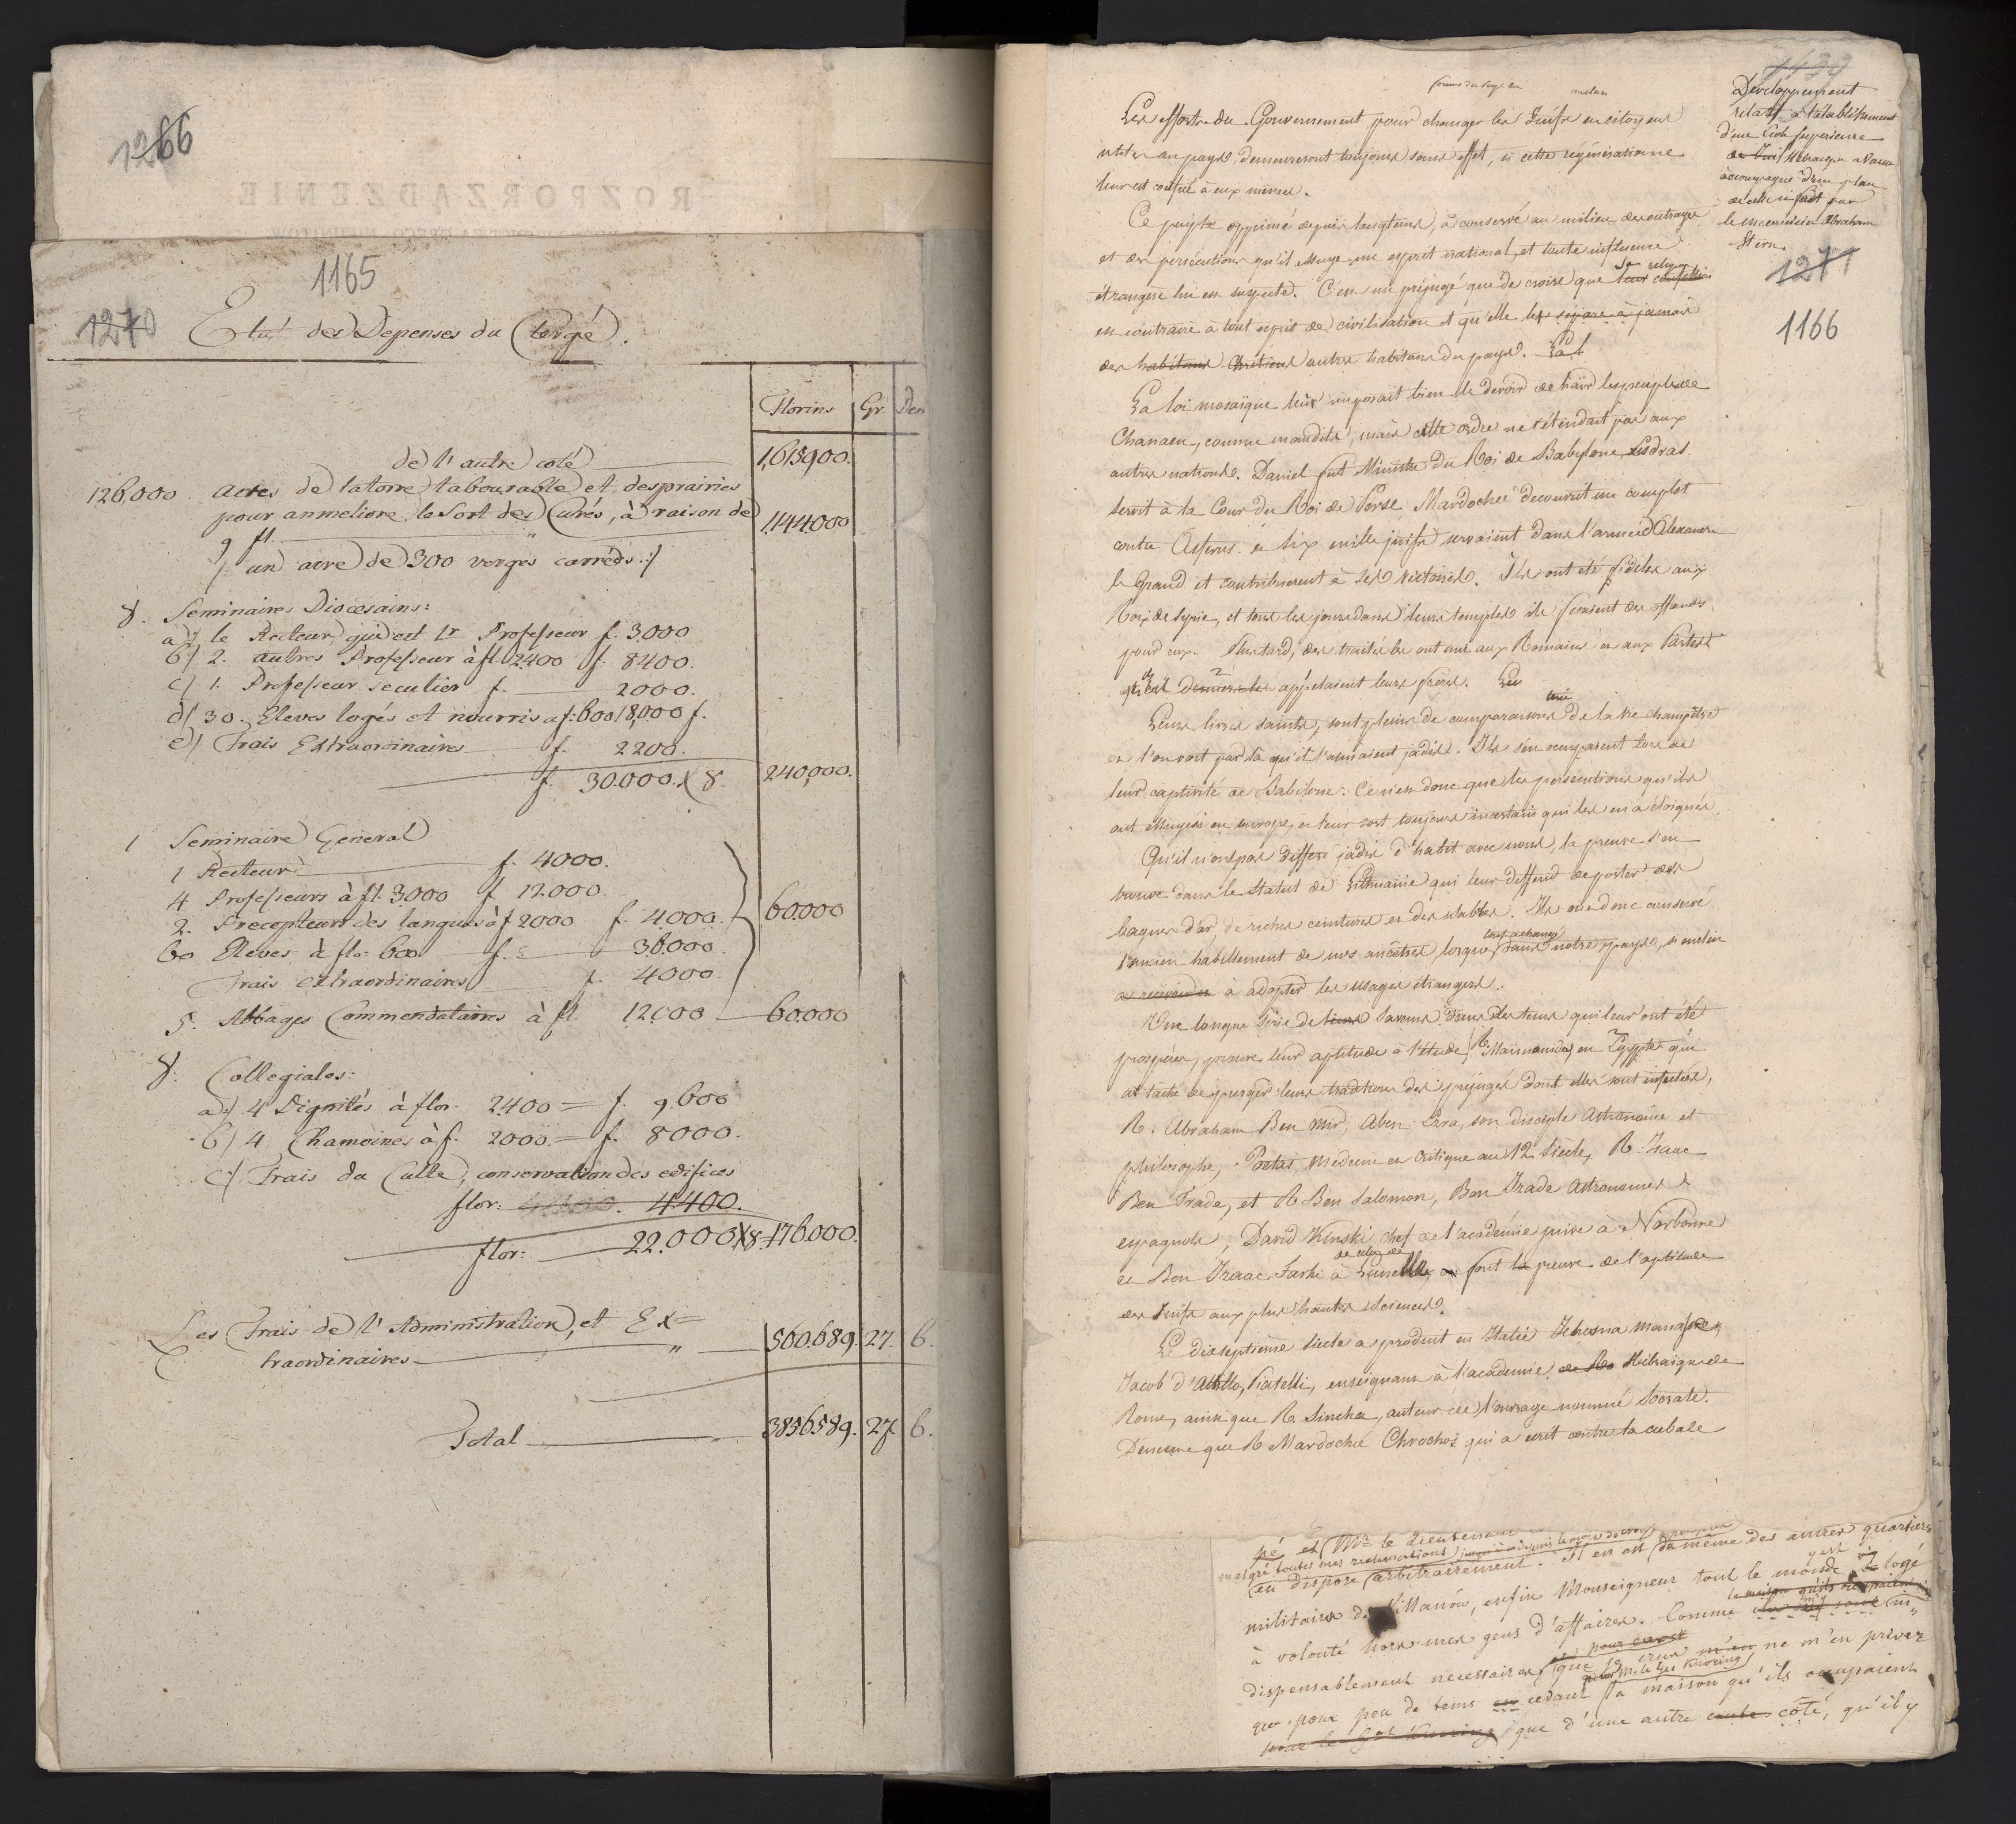 1266
ROZPORZĄDZENIE
1165
1270
Etat des Depenses du Clergé.
Florins Gr. Den
de l'autre coté 1,615900.
126,000. acres de la terre labourable et des prairies
pour anmeliore le Sort des Curés, à raison de
9 fl. 1,144,000
/: un acre de 300 verges carrées :/
8. Seminaires Diocesains:
a/ le Recteur qui est 1r Professeur f. 3,000
b/ 2. autres Professeur à fl. 2400 f. 8400.
c/ 1. Professeur seculier f. 2000.
d/ 30. Eleves logés et nourris a f: 600 18,000 f.
e/ Frais Extraordinaires f. 2200.
f. 30.000. X 8. 240,000.
1 Seminaire General
1 Recteur f. 4000.
4 Professeurs à fl. 3,000 f 12.000.
2. Precepteurs des langues à f 2000 f. 4000.
60 Eleves à flo: 600 f. 36.000. 60.000
Frais extraordinaires f. 4000.
5. Abbayes Commendataires à fl. 12,000 60.000
8. Collegiales:
a/ 4 Dignités à flor. 2400 = f. 9.600
b/ 4 Chanoines à f. 2000. = f. 8000.
c/ Frais du Culte, conservation des edifices
flor: 4400.
flor: 22.000 X 8. 176.000.
Les Frais de l'Administration, et Ex=
traordinaires 560.689. 27. 6.
Total 3856589. 27 6.
1430
Développement
relatif à l'établissement
d'une École superieure
de Juif hebraique a Varso
accompagné d'un plan
de celle ci fait par
le mecanicien Abraham
Stern.
1271
1166
Les efforts du Gouvernement pour changer les Juifs en citoyens
utiles au pays, demeureront toujours sans effet, si cette regénération ne
leur est confié à eux mêmes.
Ce peuple opprimé depuis longtems, a conservé au milieu des outrages
et des persécutions qu'il essuye un esprit national, et toute influence
étrangere lui est suspecte. C'est un préjugé que de croire que leur confession
sa religion
est contraire à tout esprit de civilisation et qu'elle les sépare à jamais
des habitans Chretiens autres habitans du pays. La l
La loi mosaïque leur imposait bien le devoir de haïr les peuples de
Chanaen, comme maudits, mais cette ordre ne s'étendait pas aux
autres nations. Daniel fut Ministre du Roi de Babylone, Esdras
servit à la Cour du Roi de Perse Mardochée decouvrit un complot
contre Assverus. et six mille juifs servaient dans l'armée d'Alexandre
le Grand et contribuerent à ses victoires. Ils ont été fidèles aux
Rois de Syrie, et tous les jours dans leurs temples ils faisaient des offrandes
pour eux. Plus tard, des traités les ont uni aux Romains et aux Partes
qu'ils appelaient leurs frères. Les
Leurs livres saints, sont pleins de comparaisons de la vie champêtre
et l'on voit par là qu'il l'aimaient jadis. Ils s'en occupaient lors de
leur captivité de Babilone. Ce n'est donc que les persécutions qu'ils
ont essuyées en europe, et leur sort toujours incertain qui les en a éloignés.
Qu'il n'ont pas differé jadis d'habit avec nous, la preuve s'en
trouve dans le Statut de Lithuanie qui leur deffend de porter des
bagues d'or, de riches ceintures et des sables. Ils ont donc conservé
l'ancien habillement de nos ancêtres, lorsque dans notre pays, si enclin
tout a changé
à adopter les usages étrangers.
Une longue Série de leurs Savans, dans des tems qui leur ont été
prospères, prouve leur aptitude à l'étude, R. Maimonides en Egypte qui
at taché de purger leurs traditions des prejugés dont elles sont infectées,
R. Abraham Ben Mir, Aben Esra, son disciple Astronome et
philosophe, Poetes Medecin et Critique au 12 Siecle, R. Isaac
Ben Trade, et R Ben Salomon, Ben Izade Astronomes
espagnols, David Kinski chef de l'academie juive à Narbonne
et Ben Izaac Jarki à Lunelle font la preuve de l'aptitude
des Juifs aux plus hautes Sciences.
Le dixseptieme siecle a produit en Italie Jehosna Manasses,
Jacob d'Attillo, Piatelli, enseignans à l'academie Hébraique de
Rome, ainsi que R. Sincha, auteur de l'ouvrage nommé Socrate.
Demême que R Mardochée Chrochos qui a ecrit contre la cabale
pé et Mr le Lieutenant
malgré toutes mes reclamations
en dispose arbitrairement. Il en est de même des autres quartiers
militaires de Villanów, enfin Monseigneur tout le monde y est logé
à volonté hors mes gens d'affaires. Comme
la maison qu'ils occupaient
dispensablement necessaires que je crus ne m'en priver
que pour peu de tems cedant la maison qu'ils occupaient
à Mr le Gen Knoring
que d'une autre coté, qu'il y